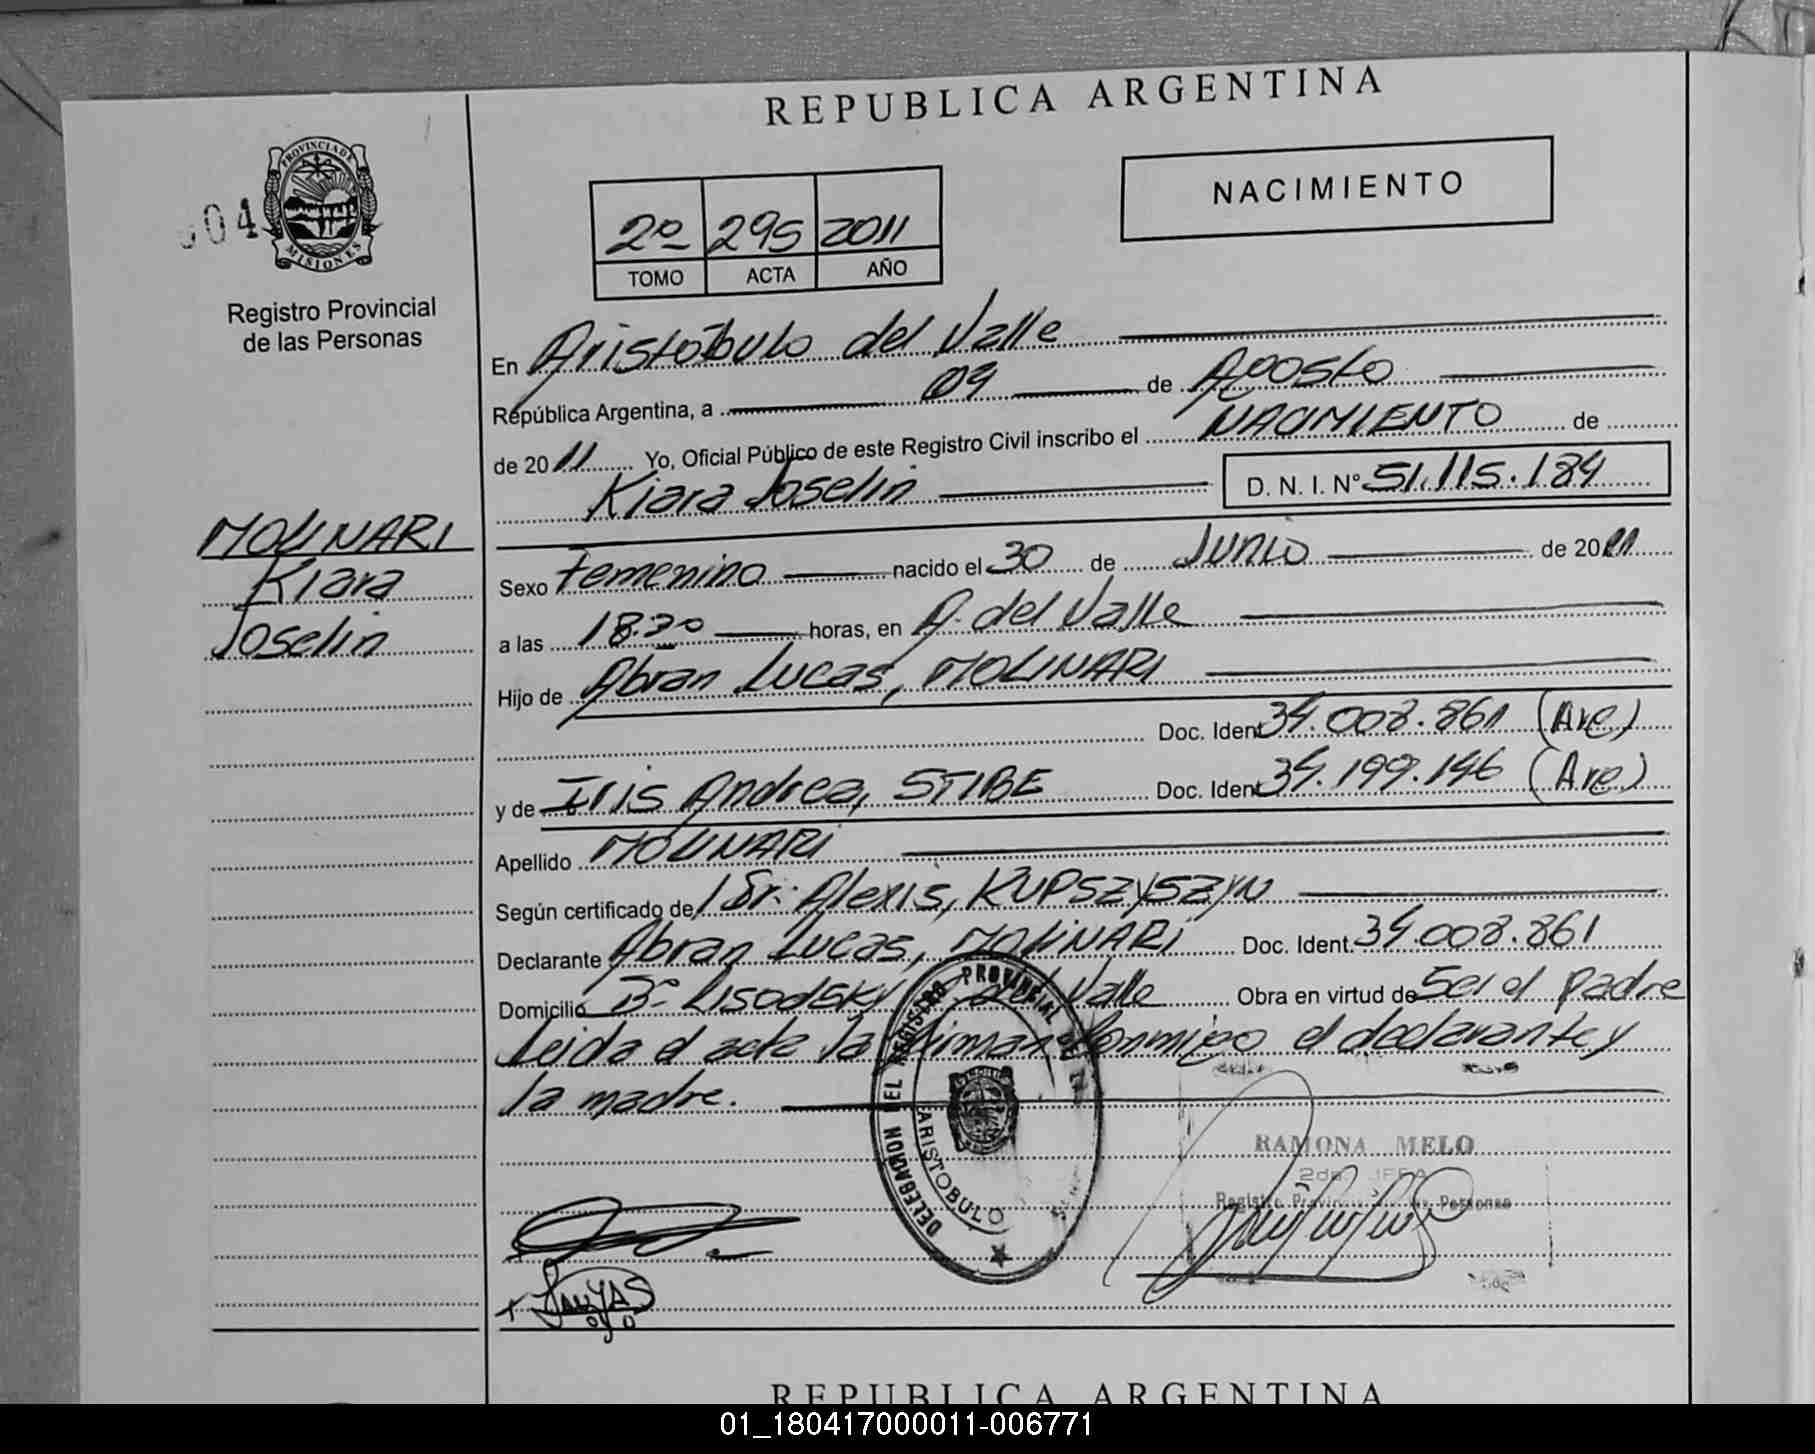 REPUBLICA ARGENTINA
NACIMIENTO
04
PROVINCIA DE
MISIONES
Registro Provincial
de las Personas
2º 295 2011
TOMO ACTA AÑO
En Aristóbulo del Valle
República Argentina, a 09 de Agosto
de 2011 Yo, Oficial Público de este Registro Civil inscribo el NACIMIENTO de
Kiara Joselin D. N. I. Nº 51.115.184
MOLINARI
Kiara
Joselin
Sexo Femenino nacido el 30 de Junio de 2011
a las 18.30 horas, en A. del Valle
Hijo de Abran Lucas, MOLINARI
Doc. Ident 34.008.861 (Arg)
y de Iris Andrea, STIBE Doc. Ident 34.199.146 (Arg)
Apellido MOLINARI
Según certificado de Dr. Alexis, KUPSZYSZYN
Declarante Abran Lucas, MOLINARI Doc. Ident. 34.008.861
Domicilio Bº Lisodsky del Valle Obra en virtud de Ser el padre
Leida el acta la firman conmigo el declarante y
la madre.
DELEGACION DEL REGISTRO PROVINCIAL DE
ARISTOBULO
RAMONA MELO
2da. JEFA
Registro Provincial de las Personas
REPUBLICA ARGENTINA
01_180417000011-006771